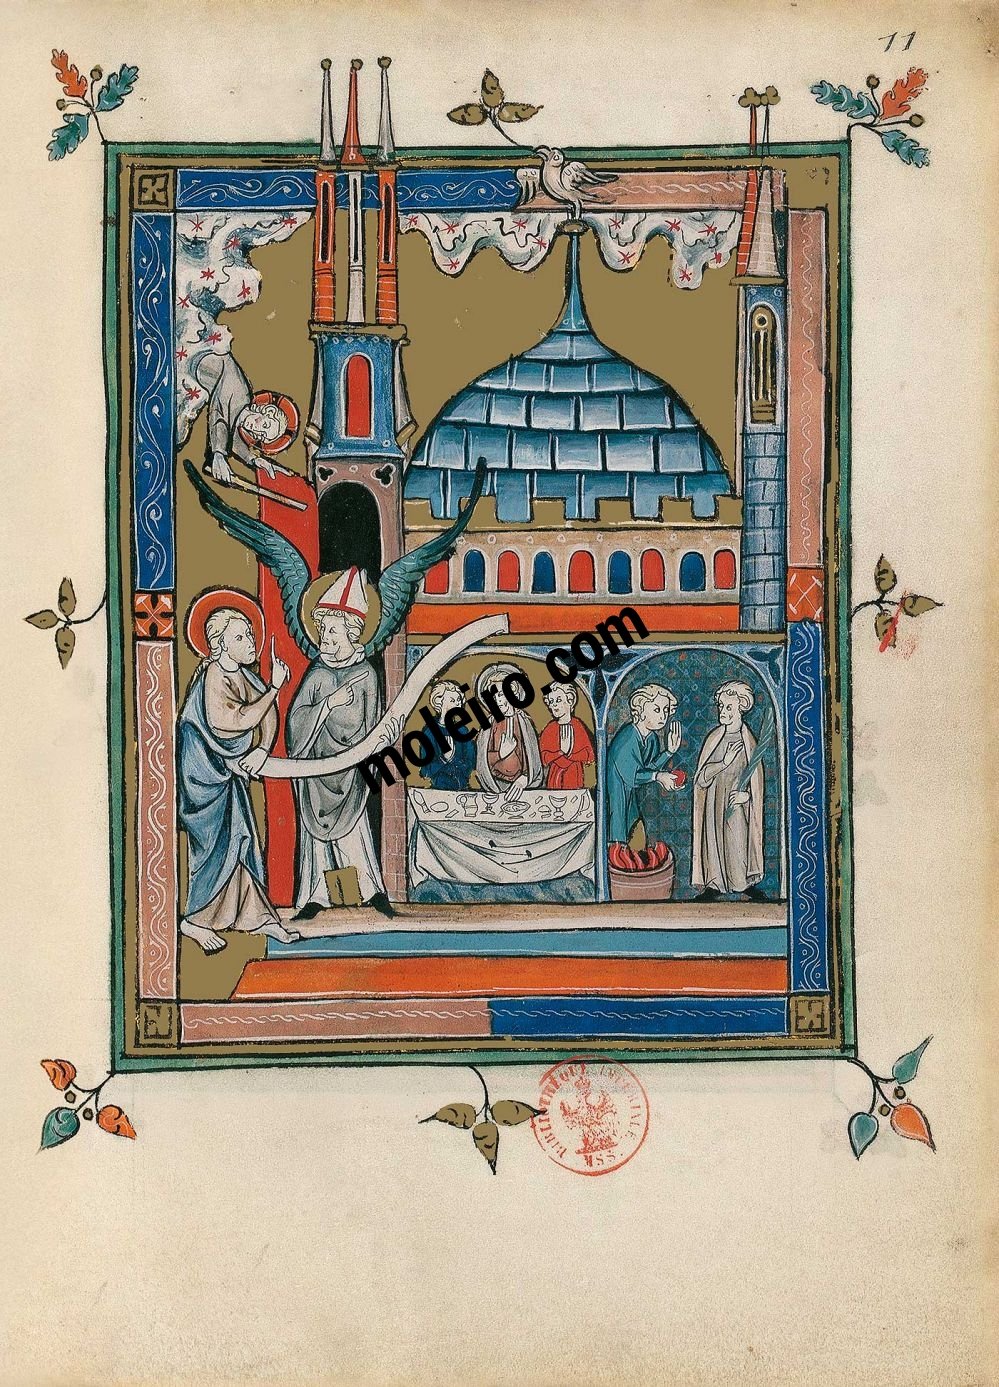 11
moleiro.com
BIBLIOTHÈQUE IMPÉRIALE
MSS.